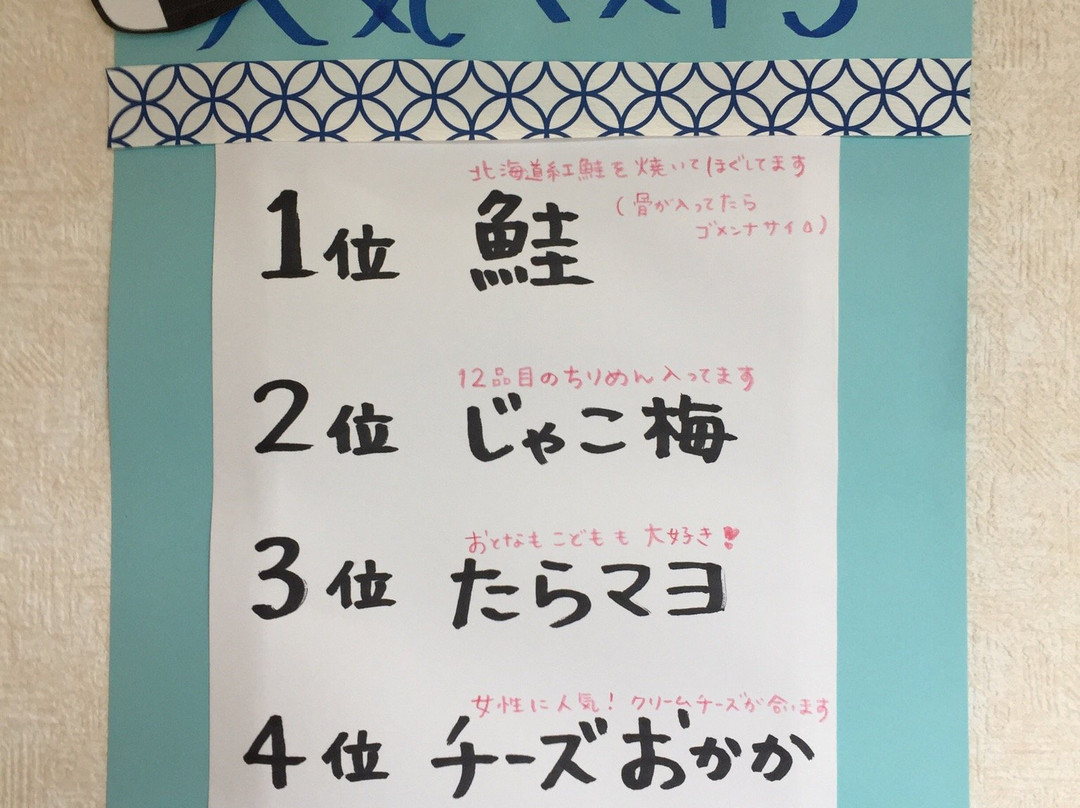 人気
北海道紅鮭を焼いてほぐしてます
(骨が入ってたら
ゴメンナサイ)
1位 鮭
12品目のちりめん入ってます
2位 じゃこ梅
おとなもこどもも大好き!
3位 たらマヨ
女性に人気! クリームチーズが合います
4位 チーズおかか